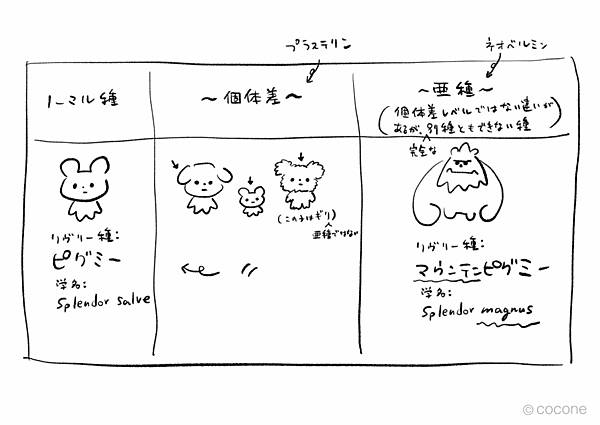 プラステリン
ネオベルミン
ノーマル種
〜個体差〜
〜亜種〜
(個体差レベルではない違いが
あるが、別種ともできない種)
完全な
(この子はギリ)
亜種ではない
リヴリー種:
ピグミー
学名:
Splendor salve
リヴリー種:
マウンテンピグミー
学名:
Splendor magnus
© cocone